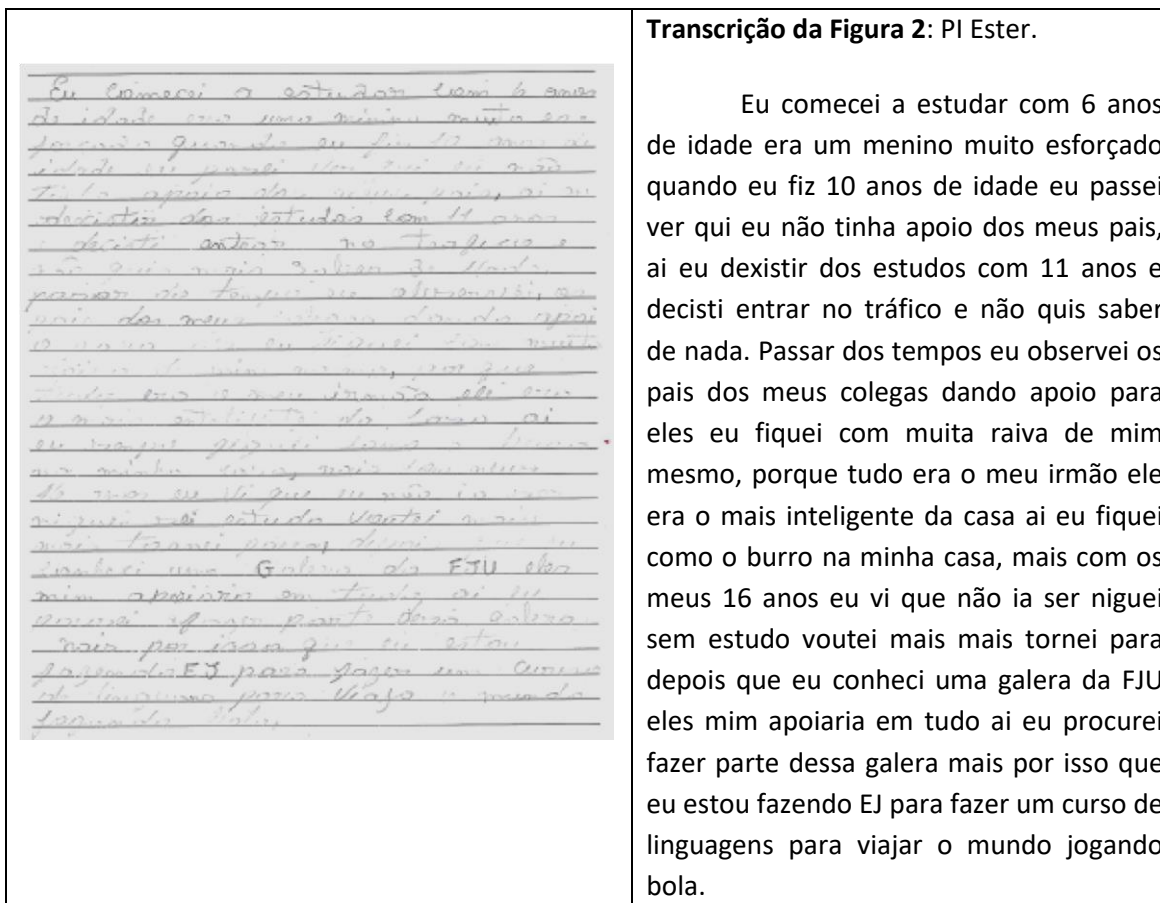 Eu comecei a estudar com 6 anos
de idade era uma minino muito esn
forcado quando eu fiz 10 anos de
idade eu não
apoio dos meus pais, ai eu
dexistir dos estudos com 11 anos
e decisti entrar no trafico e
não quis mais
eu observei, os
pais dos meus dando apoi
eu fiquei com muito
de mim
tudo era o meu irmão ele era
o mais da ai
eu fiquei como o burro
na minha mais com meus
16 anos eu vi que eu não ia ser
estudo voutei mais
mais
conheci uma Galera da FJU eles
mim em tudo ai eu
fazer parte galera
mais por isson que eu estou
fazendo EJ para fazer um
de para o mundo
Transcrição da Figura 2: PI Ester.
Eu comecei a estudar com 6 anos
de idade era um menino muito esforçado
quando eu fiz 10 anos de idade eu passei
ver qui eu não tinha apoio dos meus pais,
ai eu dexistir dos estudos com 11 anos e
decisti entrar no tráfico e não quis saber
de nada. Passar dos tempos eu observei os
pais dos meus colegas dando apoio para
eles eu fiquei com muita raiva de mim
mesmo, porque tudo era o meu irmão ele
era o mais inteligente da casa ai eu fiquei
como o burro na minha casa, mais com os
meus 16 anos eu vi que não ia ser niguei
sem estudo voutei mais mais tornei para
depois que eu conheci uma galera da FJU
eles mim apoiaria em tudo ai eu procurei
fazer parte dessa galera mais por isso que
eu estou fazendo EJ para fazer um curso de
linguagens para viajar o mundo jogando
bola.